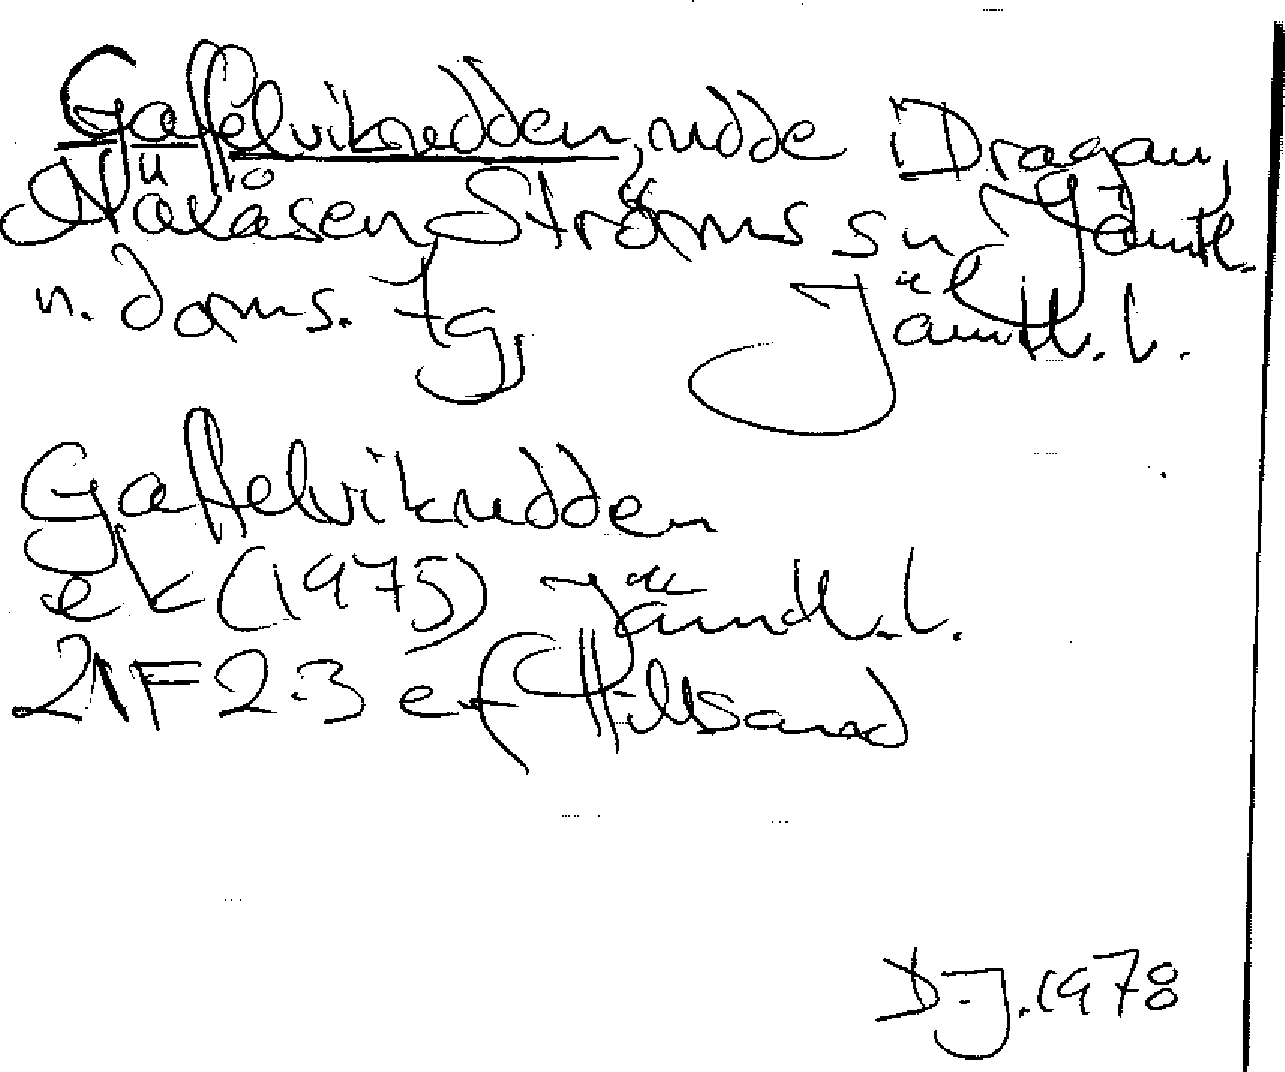 Gaffelvikudden, udde Dragan,
Näläsen, Ströms sn Jämtl.
n. doms. tg, Jämtl. l.
Gaffelvikudden
ek (1975) Jämtl. l.
21F 2-3 e-f Hillsand
D-J. 1978